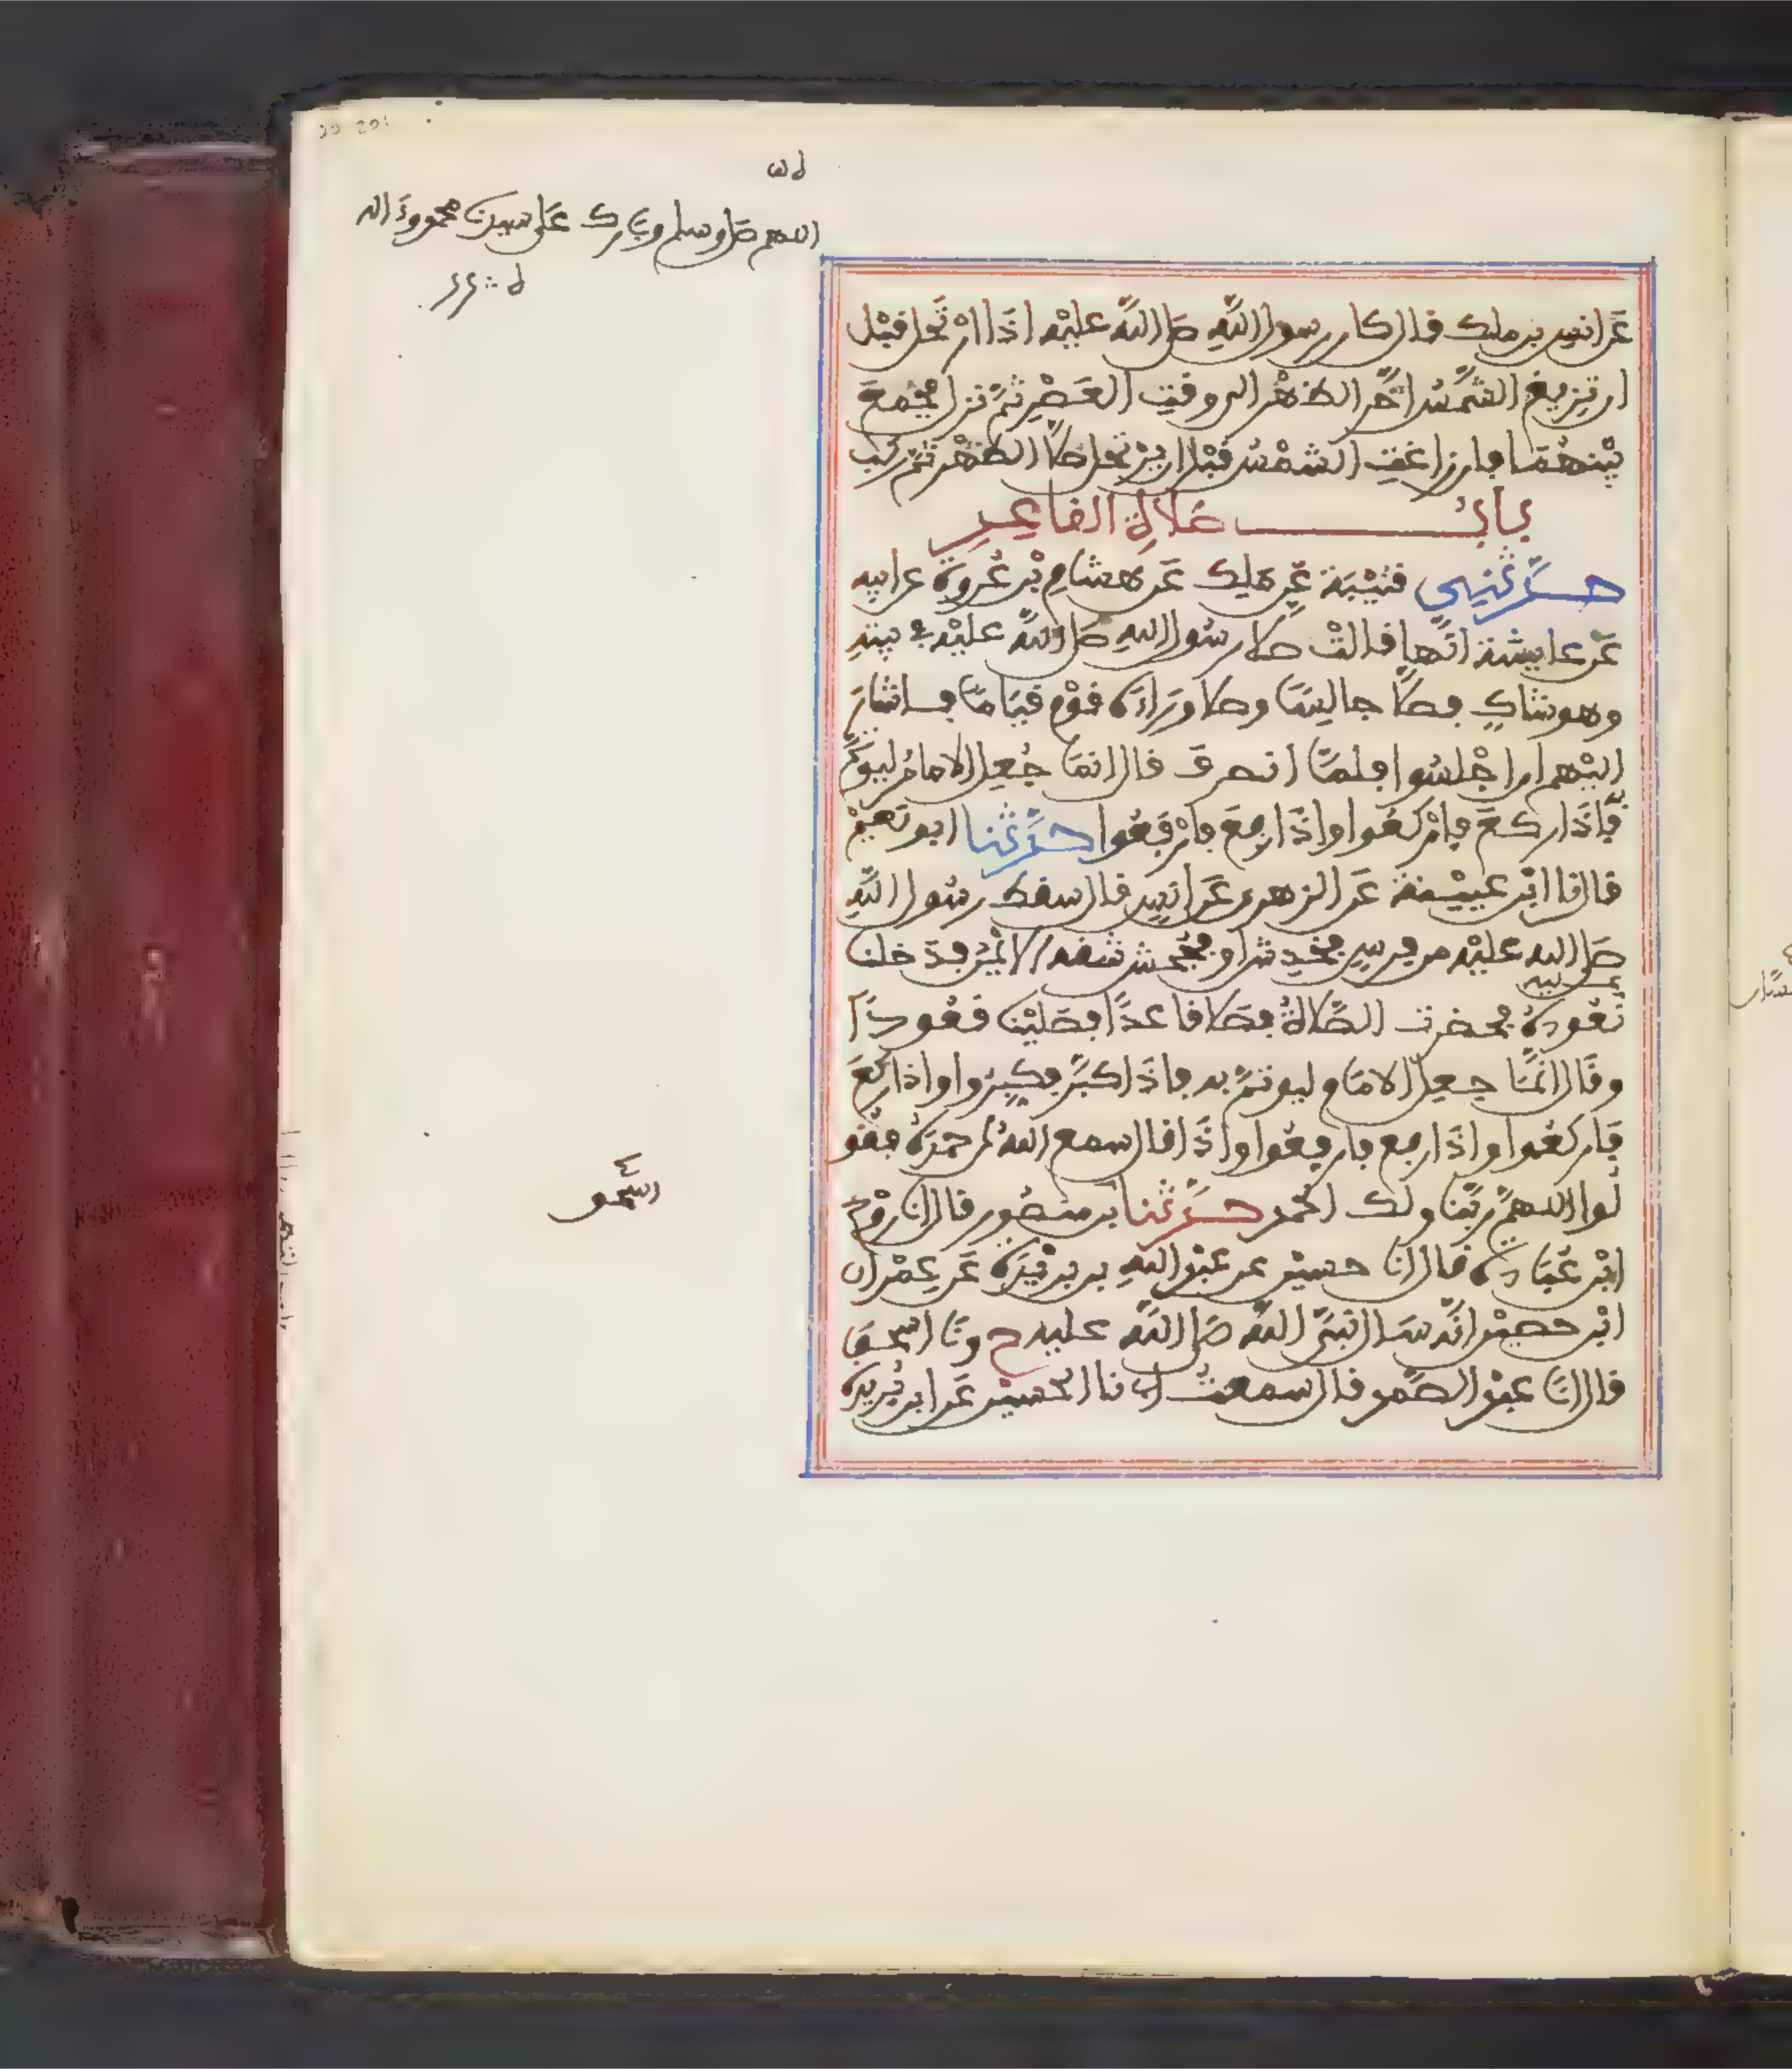 اللهم صل وسلم وبارك على سيدنا محمد وءاله
عن انس بن ملك قال كان رسول الله صلى الله عليه اذا ارتحل قبل
ان تزيغ الشمس اخر الظهر الى وقت العصر ثم نزل فجمع
بينهما فان زاغت الشمس قبل ان يرتحل صلى الظهر ثم ركب
باب صلاة القاعد
حدثني قتيبة عن ملك عن هشام بن عروة عن ابيه
عن عايشة انها قالت صلى رسول الله صلى الله عليه في بيته
وهو شاك فصلى جالسا وصلى وراءه قوم قياما فاشار
اليهم ان اجلسوا فلما انصرف قال انما جعل الامام ليوتم
به فاذا ركع فاركعوا واذا رفع فارفعوا حدثنا ابو نعيم
قال نا ابن عيينة عن الزهري عن انس قال سقط رسول الله
صلى الله عليه من فرس فخدش او فجحش شقه الايمن فدخلنا
عليه
نعوده فحضرت الصلاة فصلى قاعدا فصلينا قعودا
وقال انما جعل الامام ليوتم به فاذا كبر فكبروا واذا ركع
فاركعوا واذا رفع فارفعوا واذا قال سمع الله لمن حمده فقو
لوا اللهم ربنا ولك الحمد حدثنا بن منصور قال انا روح
ابن عبادة قال انا حسين عن عبد الله بن بريدة عن عمران
ابن حصين انه سال النبي الله صلى الله عليه ح ونا اسحق
قال انا عبد الصمد قال سمعت ابي نا الحسين عن ابن بريدة
اسحق